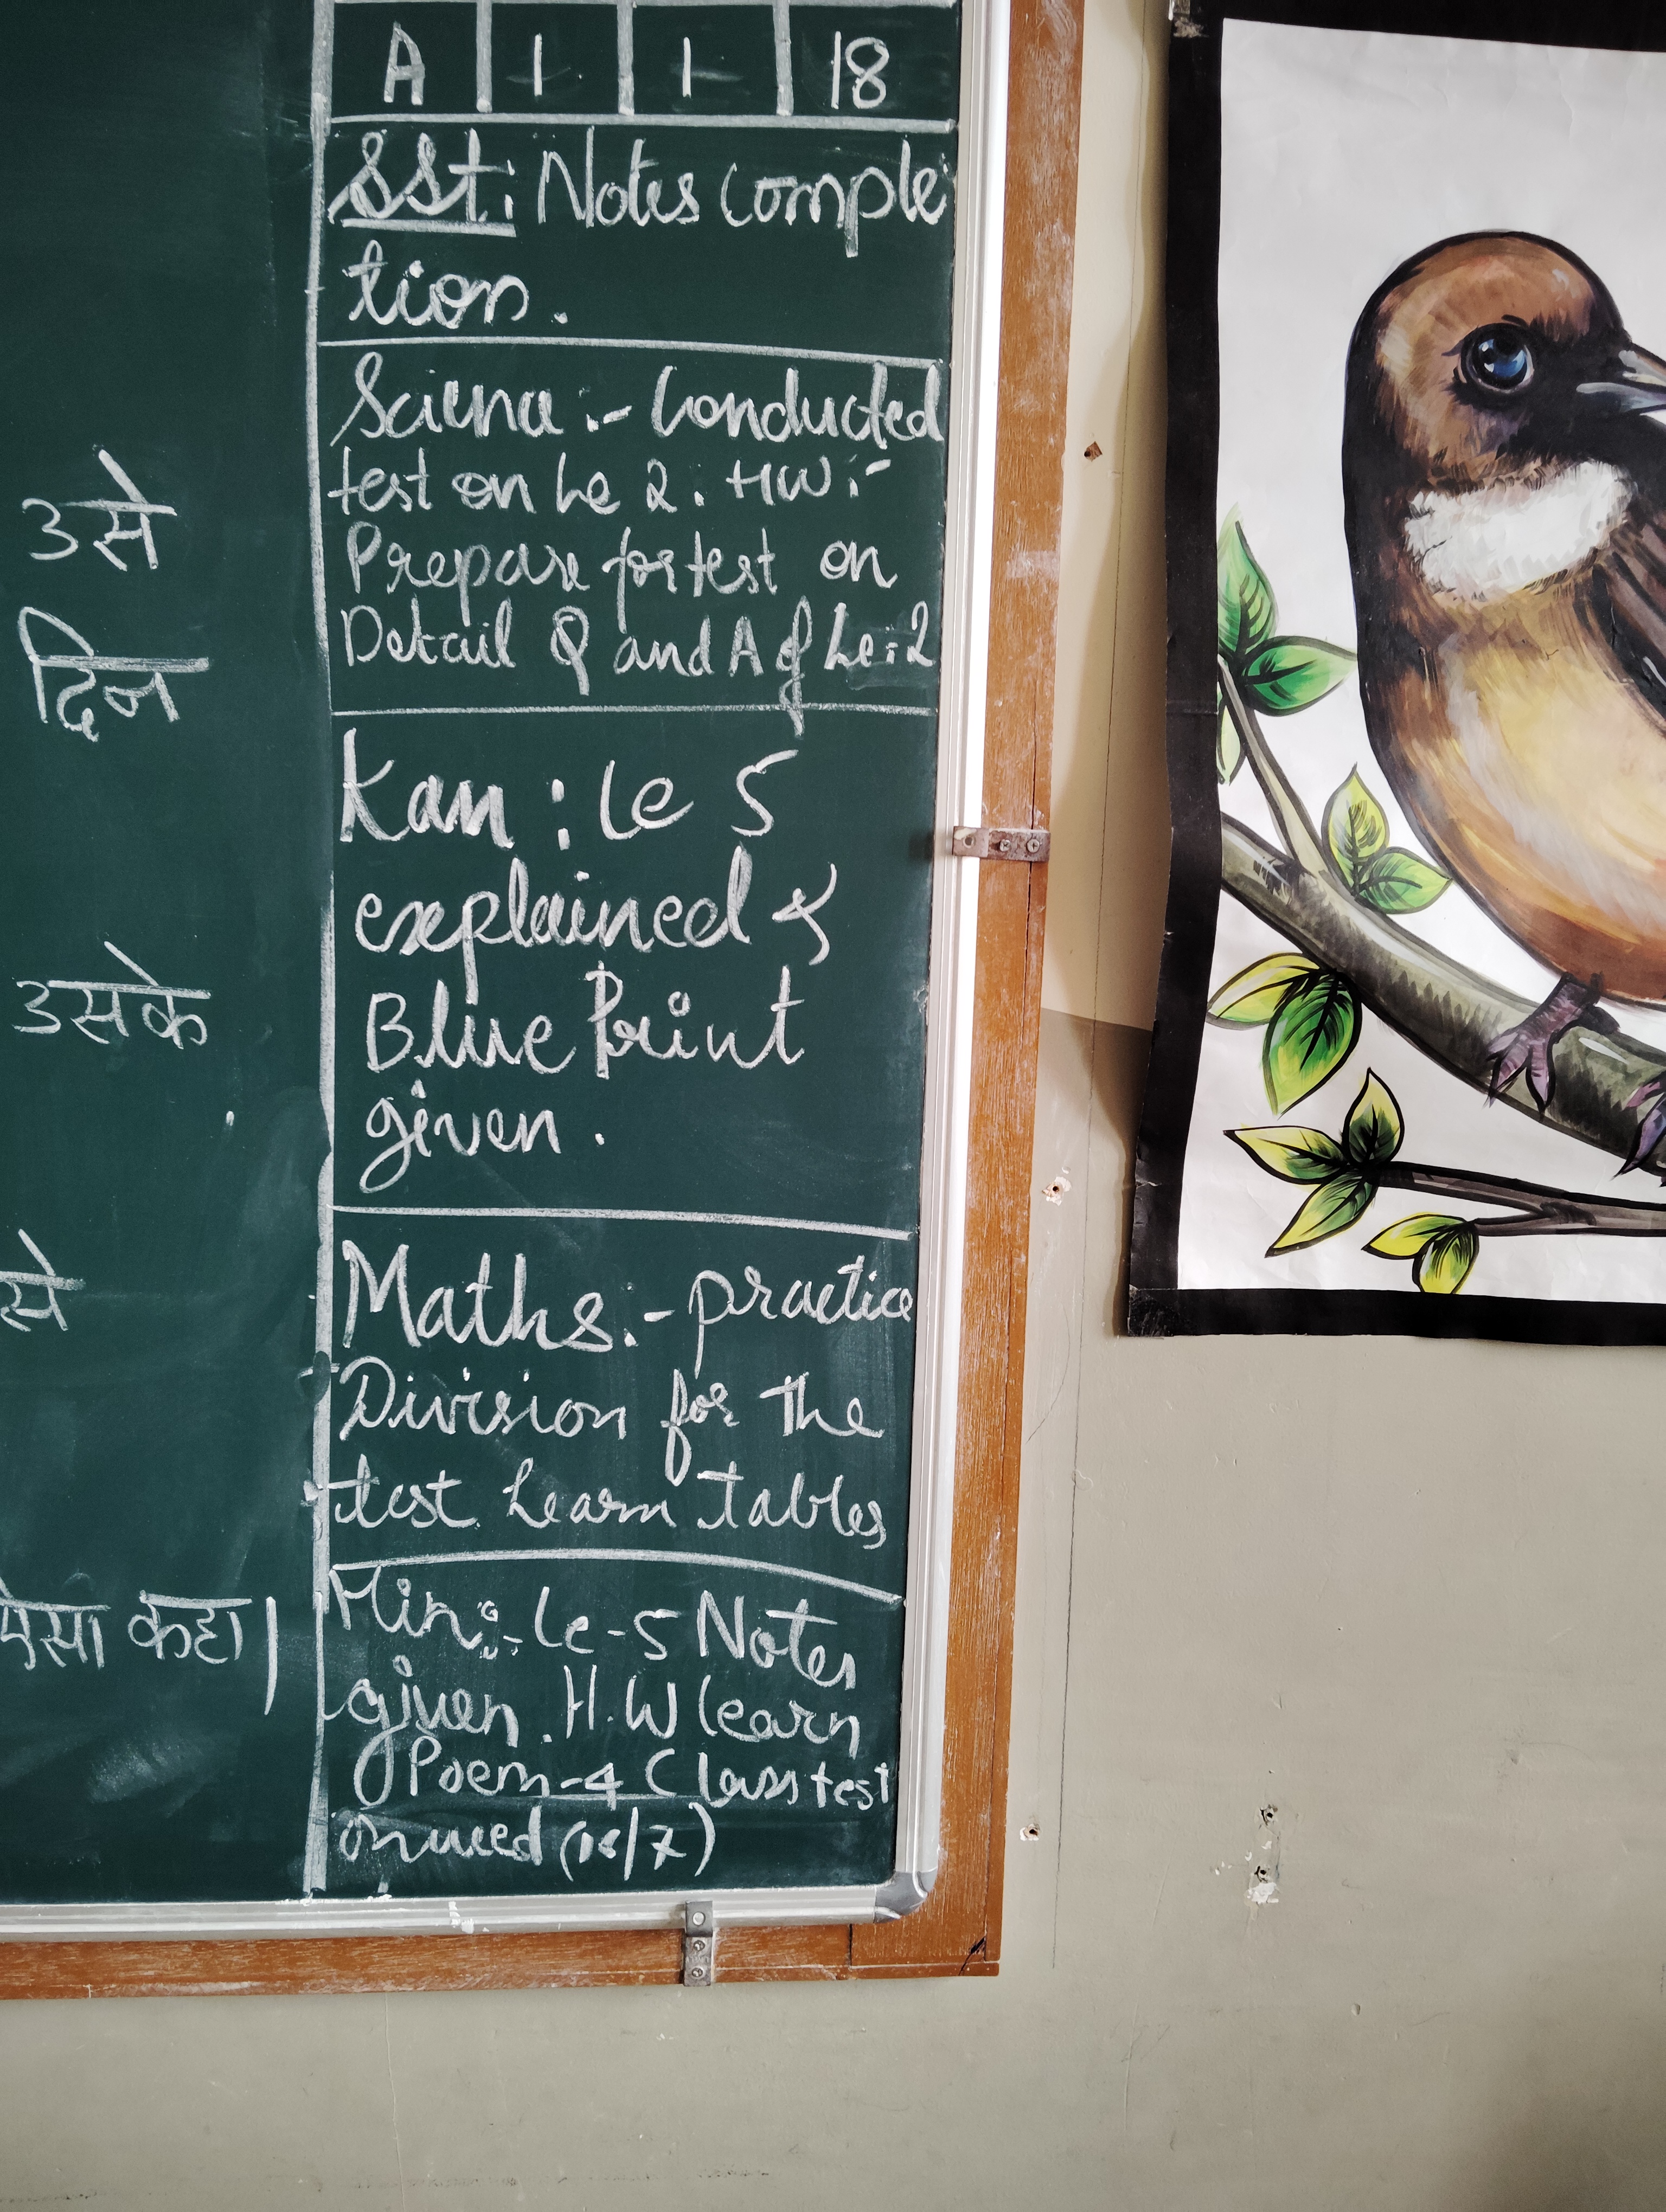 A 1 1 18
SSt: Notes comple
tion.
Science :- Conducted
test on Le 2. HW :-
Prepare for test on
Detail Q and A of Le:2
Kan : Le 5
explained &
Blue Print
given.
Maths:- practice
Division for the
test Learn Tables
Hin:- Le-5 Notes
given. H.W learn
Poem-4 Class test
on wed (16/7)
उसे
दिन
उसके
से
ऐसा कहा।